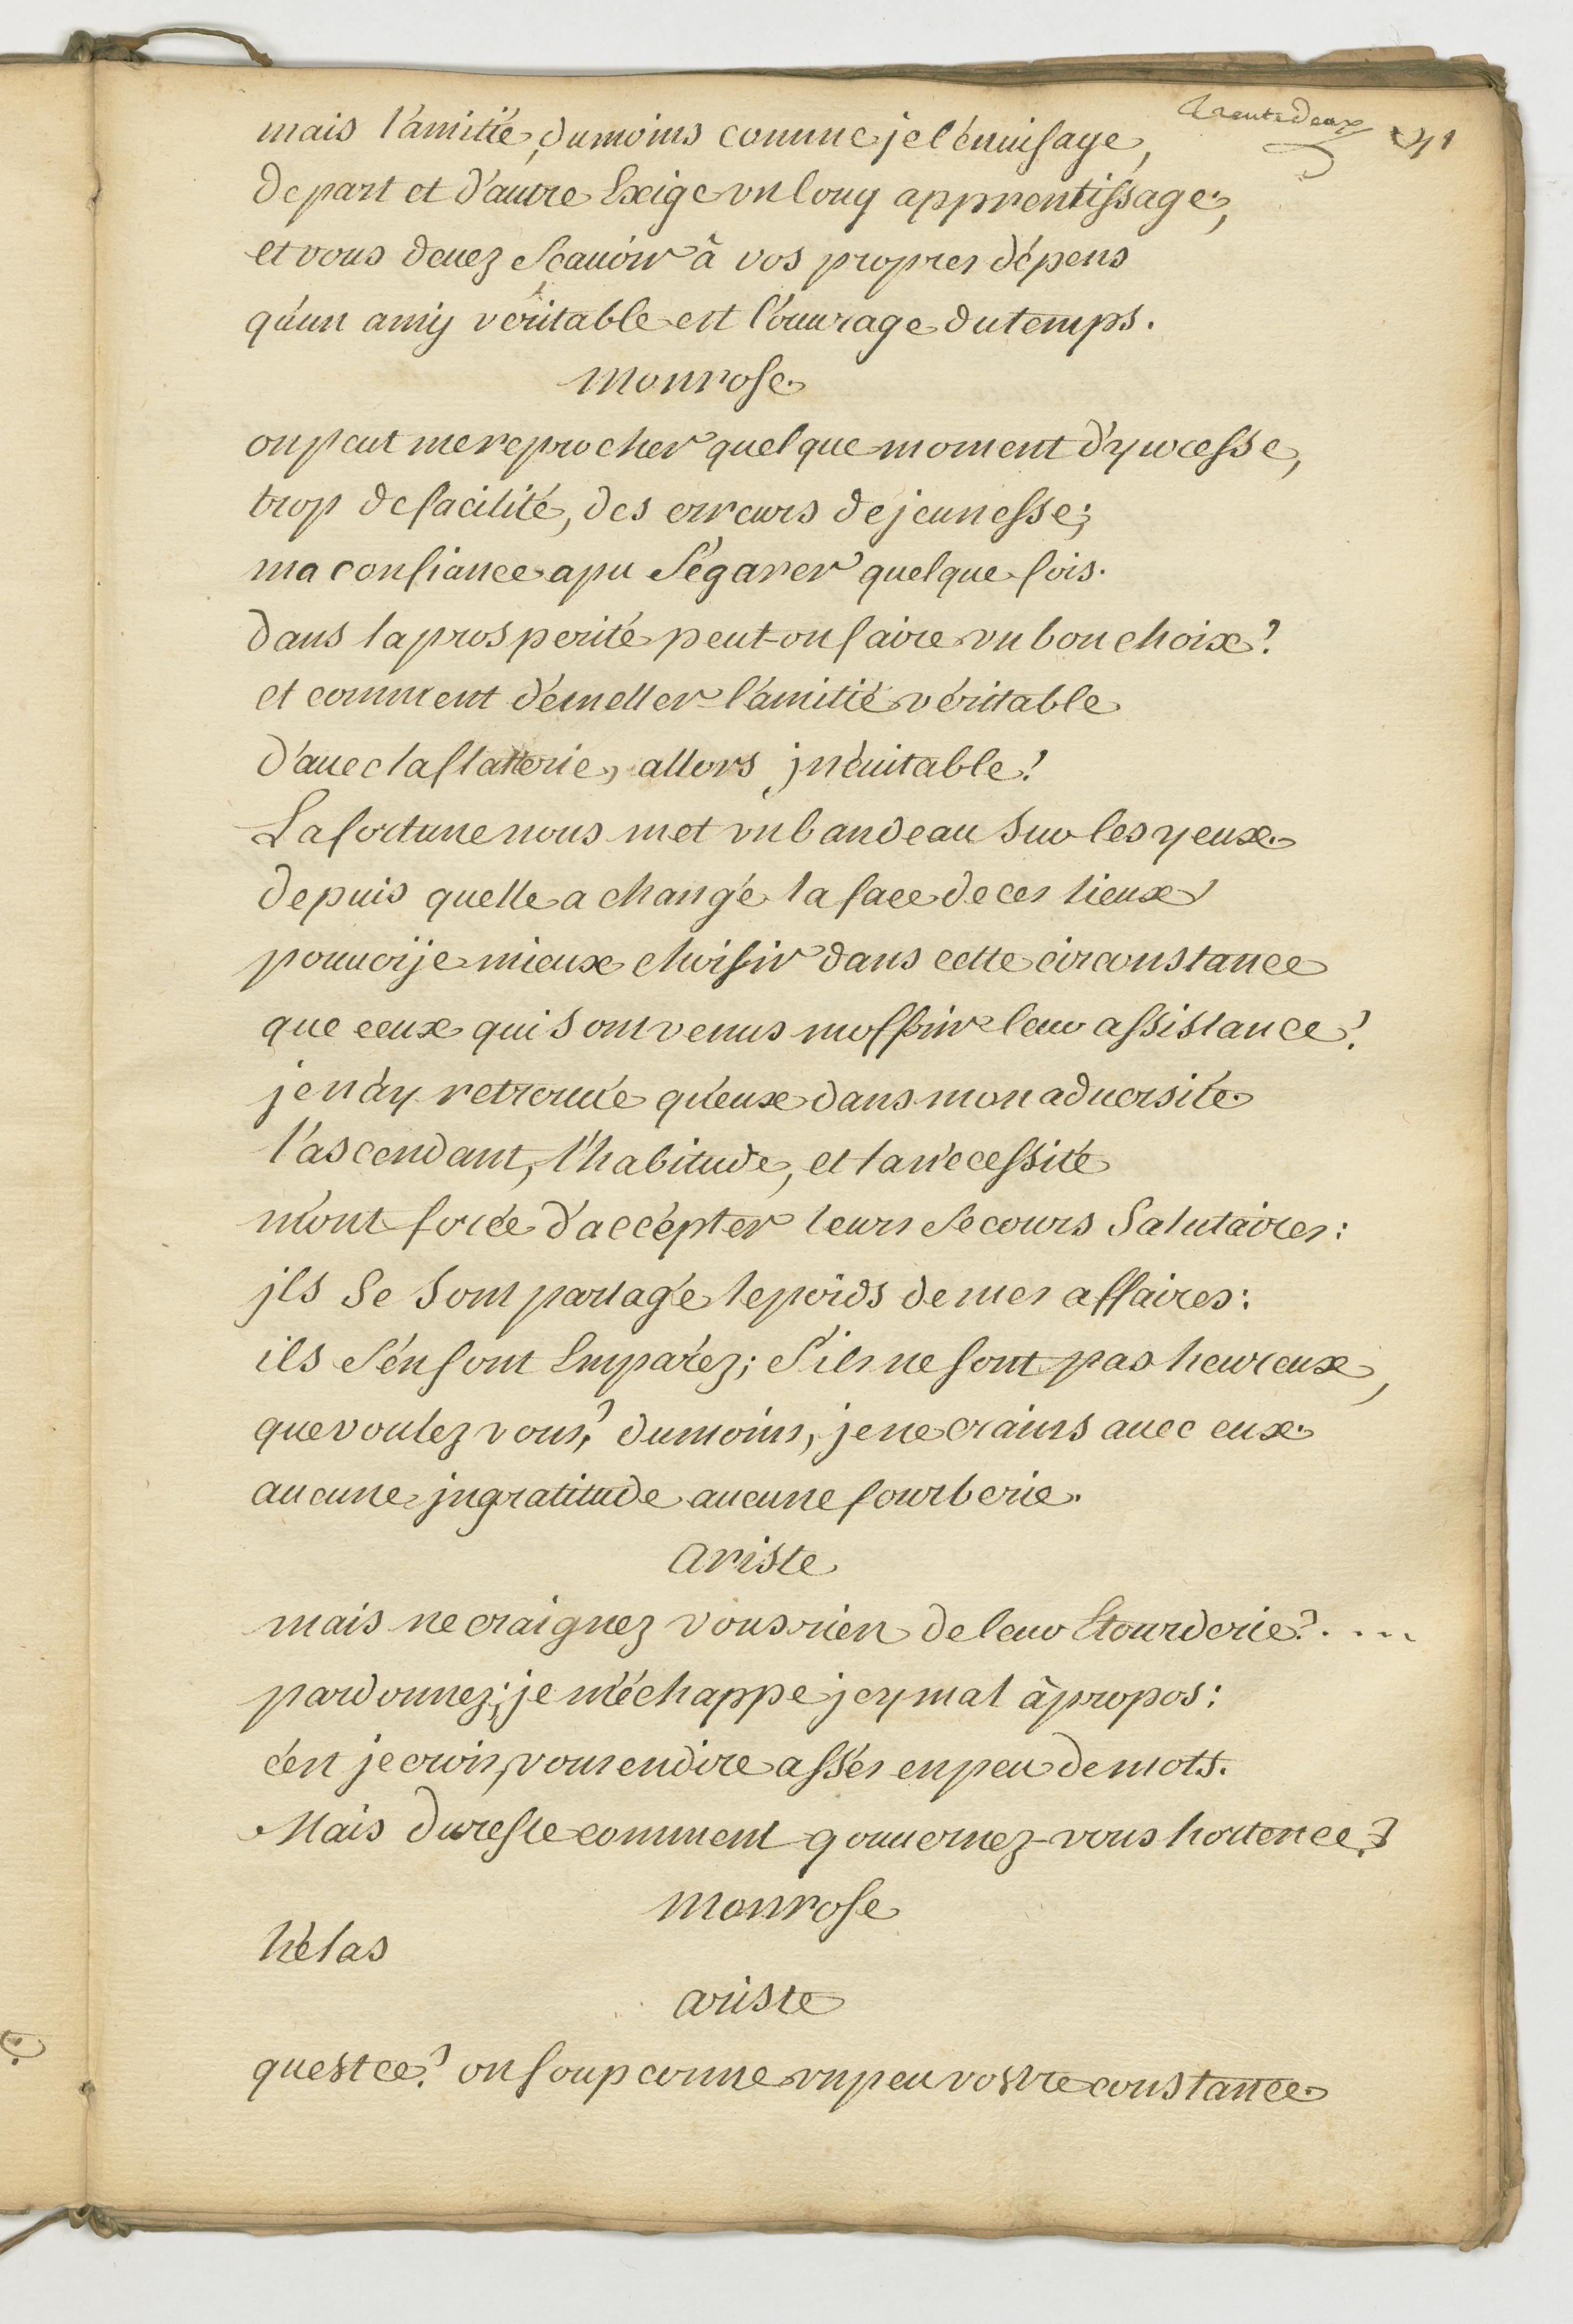 trente deux
mais l'amitié, du moins comme je l'énuisage,
de part et d'autre Exige vn long apprentissage,
et vous deuez Scauóir à vos propres dépens
qu'un amy véritable est l'ouurage du temps.
monrose
on peut me reprocher quelque moment d'yuresse,
trop de facilité, des erreurs de jeunesse;
ma confiance a pu s'égarer quelque fois.
dans la prosperité peut-on faire vn bon choix?
et comment démeller l'amitié véritable
d'auec la flatterie, allors jnéuitable?
La fortune nous met vn bandeau sur les yeux.
depuis quelle a changé la face de ces lieux
pouuoije mieux choisir dans cette circonstance
que ceux qui sont venus moffrir leur assistance?
je n'ay retrouué qu'eux dans mon aduersité.
l'ascendant, l'habitude, et la nécessité
m'ont forcé d'accépter leurs Secours Salutaires:
jls se sont partagé le poids de mes affaires:
ils s'en sont Emparéz; s'ils ne sont pas heureux,
que voulez vous? du moins, je ne crains auec eux
aucune jngratitude aucune fourberie.
ariste
mais ne craignez vous rien de leur Etourderie?....
pardonnez; je m'échappe jcy mal à propos:
c'est je crois, vous en dire assés en peu de mots.
Mais du reste comment gouuernez-vous hortence?
monrose
hélas
ariste
quest ce? on soupconne vn peu vostre constance